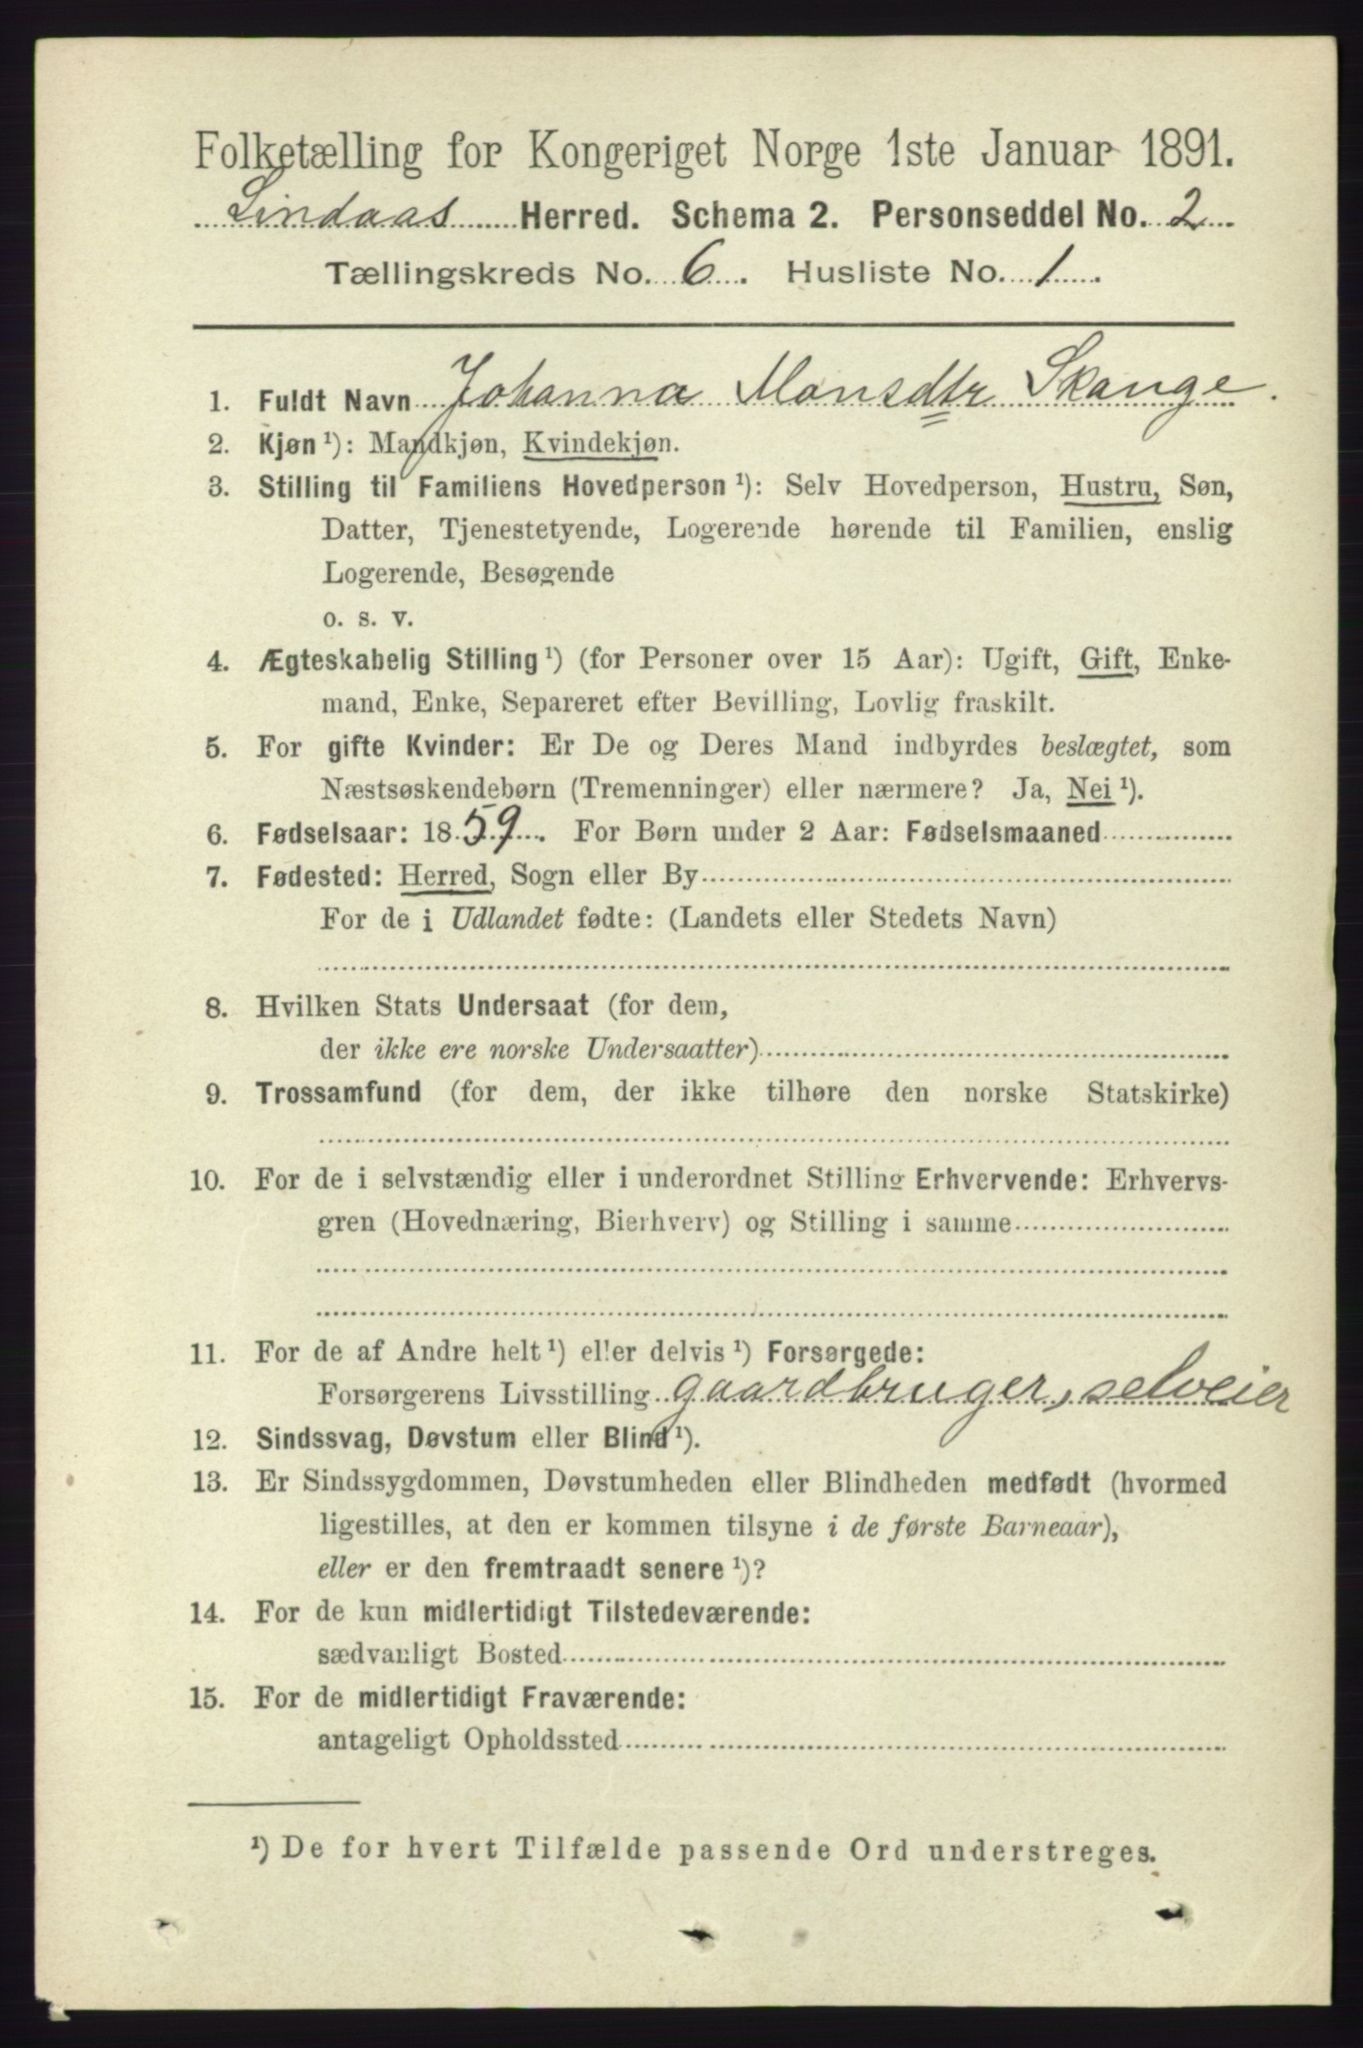 Folketælling for Kongeriget Norge 1ste Januar 1891.
Lindaas Herred. Schema 2. Personseddel No. 2
Tællingskreds No. 6. Husliste No. 1
1. Fuldt Navn Johanna Monsdtr Skauge.
2. Kjøn ¹): Mandkjøn, Kvindekjøn.
3. Stilling til Familiens Hovedperson ¹): Selv Hovedperson, Hustru, Søn,
Datter, Tjenestetyende, Logerende hørende til Familien, enslig
Logerende, Besøgende
o. s. v.
4. Ægteskabelig Stilling ¹) (for Personer over 15 Aar): Ugift, Gift, Enke-
mand, Enke, Separeret efter Bevilling, Lovlig fraskilt.
5. For gifte Kvinder: Er De og Deres Mand indbyrdes beslægtet, som
Næstsøskendebørn (Tremenninger) eller nærmere? Ja, Nei ¹).
6. Fødselsaar: 1859. For Børn under 2 Aar: Fødselsmaaned
7. Fødested: Herred, Sogn eller By
For de i Udlandet fødte: (Landets eller Stedets Navn)
8. Hvilken Stats Undersaat (for dem,
der ikke ere norske Undersaatter)
9. Trossamfund (for dem, der ikke tilhøre den norske Statskirke)
10. For de i selvstændig eller i underordnet Stilling Erhvervende: Erhvervs-
gren (Hovednæring, Bierhverv) og Stilling i samme
11. For de af Andre helt ¹) eller delvis ¹) Forsørgede:
Forsørgerens Livsstilling gaardbruger, selveier
12. Sindssvag, Døvstum eller Blind ¹).
13. Er Sindssygdommen, Døvstumheden eller Blindheden medfødt (hvormed
ligestilles, at den er kommen tilsyne i de første Barneaar),
eller er den fremtraadt senere ¹)?
14. For de kun midlertidigt Tilstedeværende:
sædvanligt Bosted
15. For de midlertidigt Fraværende:
antageligt Opholdssted
¹) De for hvert Tilfælde passende Ord understreges.